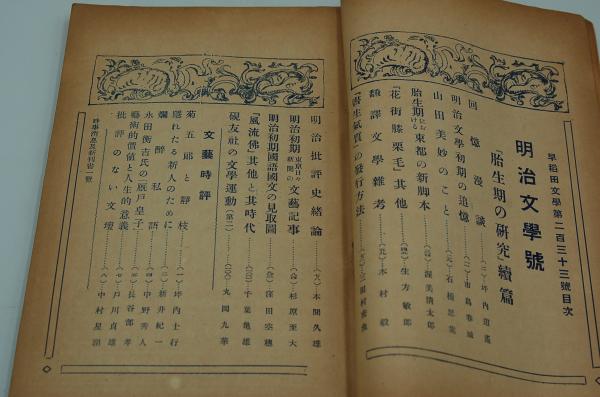 早稻田文學第二百三十三號目次
明治文學號
「胎生期の研究」續篇
回憶漫談 坪內逍遙
明治文學初期の追憶 市島春城
山田美妙のこと 石橋思案
胎生期における東都の新脚本 渥美淸太郎
「花街膝栗毛」其他 生方敏郎
飜譯文學雜考 木村毅
「書生氣質」の發行方法
明治批評史緒論 本間久雄
明治初期東京日々新聞の文藝記事 杉原至大
明治初期國語國文の見取圖 窪田空穗
「風流佛」其他と其時代 千葉龜雄
硯友社の文學運動(第二) 丸岡九華
文藝時評
菊五郎と靜枝 (一) 坪內士行
隱れたる新人のために (二) 新井紀一
爛醉私語 (四) 中野秀人
永田衡吉氏の『廐戶皇子』 長谷部孝
藝術的價値と人生的意義 戶川貞雄
批評のない文壇 (八) 中村星湖